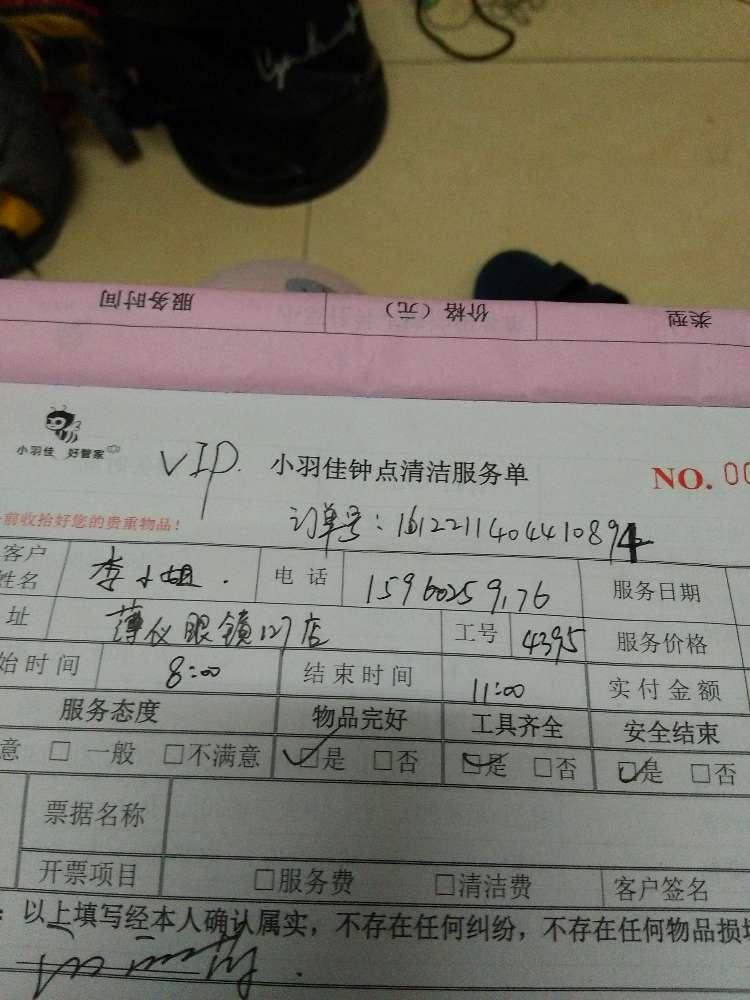 服务时间 价格（元） 类型
小羽佳 好管家
VIP. 小羽佳钟点清洁服务单 NO. 00
前收拾好您的贵重物品！
订单号：1612211404410894
客户姓名 李小姐. 电话 15960259176 服务日期
址 薄仪眼镜127店 工号 4395 服务价格
始时间 8:00 结束时间 11:00 实付金额
服务态度 物品完好 工具齐全 安全结束
意 □ 一般 □不满意 ☑是 □否 ☑是 □否 ☑是 □否
票据名称
开票项目 □服务费 □清洁费 客户签名
：以上填写经本人确认属实，不存在任何纠纷，不存在任何物品损